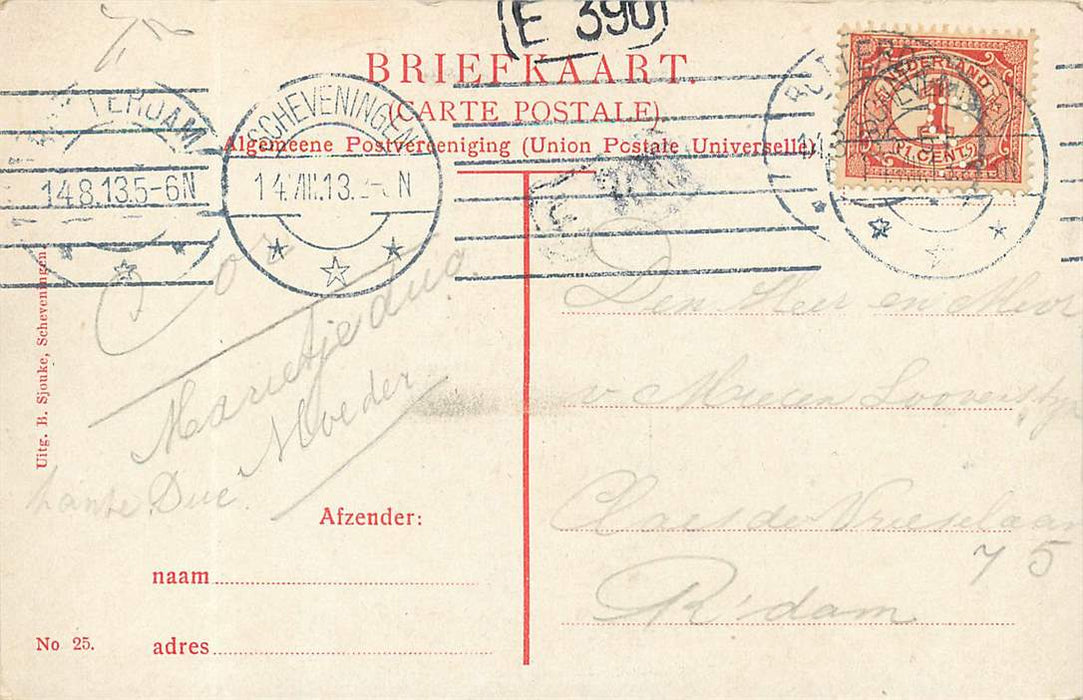 (E 390)
BRIEFKAART.
(CARTE POSTALE).
Algemeene Postvereeniging (Union Postale Universelle)
NEDERLAND
1
1 CENT
ROTTERDAM
14 8.13 5-6N
SCHEVENINGEN
14.VIII.13. N
Uitg. B. Sjouke, Scheveningen
Cor
Marietje
Moeder
tante Duc
Den Heer en Mevr
v Meelen
Claes de Vrieselaan
75
R'dam
Afzender:
naam
adres
No 25.